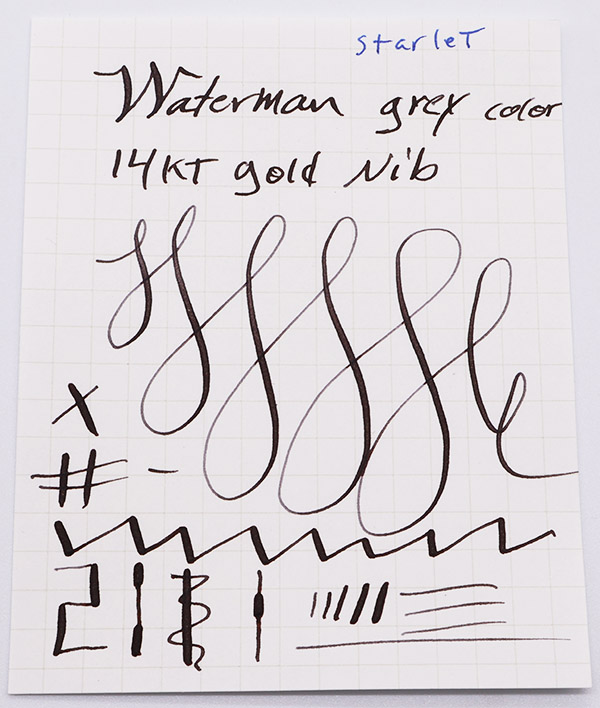 starleT
Waterman grey color
14KT gold Nib
X
#-